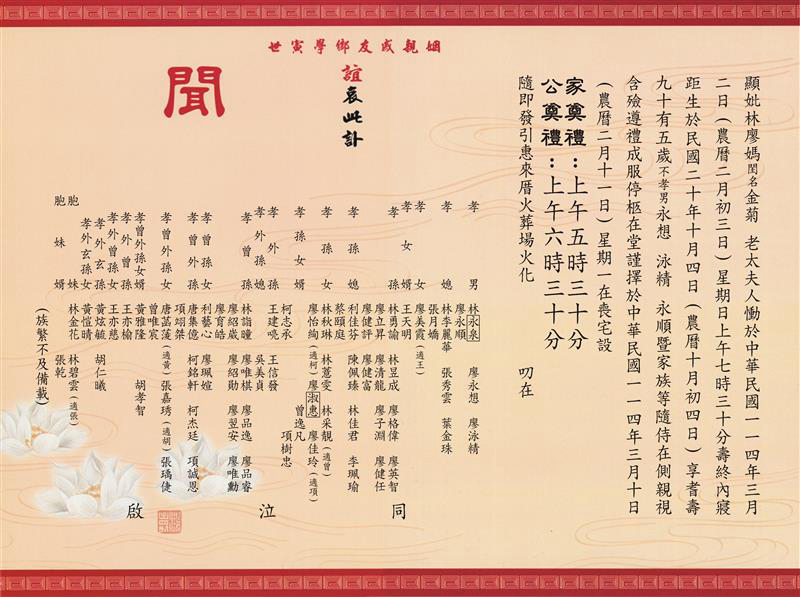 顯妣林廖媽閨名金菊　老太夫人慟於中華民國一一四年三月
二日(農曆二月初三日)星期日上午七時三十分壽終內寢
距生於民國二十年十月四日(農曆十月初四日)享耆壽
九十有五歲不孝男永想　泳精　永順暨家族等隨侍在側親視
含殮遵禮成服停柩在堂謹擇於中華民國一一四年三月十日
(農曆二月十一日)星期一在喪宅設
家奠禮：上午五時三十分
公奠禮：上午六時三十分　叨在
隨即發引惠來厝火葬場火化
姻親戚友鄉學寅世
誼哀此訃
聞
孝男　林永泉　廖永想　廖泳精
廖永順
孝媳　林李麗華　張秀雲　葉金珠
張月嬌
孝女　廖美霞(適王)
孝女婿　王天明
孝孫　林勇諭　林昱成　廖格偉　廖英智
廖立昇　廖清龍　廖子淵　廖健任
廖健評　廖健富
孝孫媳　利佳芬　陳佩臻　林佳君　李珮瑜
蔡頤庭
孝孫女　林秋琳　林薏雯　林采靚(適曾)
廖怡絢(適柯)　廖淑惠　廖佳玲(適項)
孝孫女婿　曾逸凡　項樹忠
柯志承
孝外孫　王建喨　王信發
孝外孫媳　吳美貞
孝曾孫　林詣瞳　廖唯棋　廖品逸　廖品睿
廖紹崴　廖紹勛　廖翌安　廖唯勳
廖育皓
孝曾孫女　利藝心　廖珮媗
孝曾外孫　唐集億　柯銘軒　柯杰廷　項誠恩
項翊桀
孝曾外孫女　唐菡蔆(適黃)　張嘉琇(適胡)　張瑀倢
曾唯宸
孝曾外孫女婿　黃雅隆　胡孝智
孝外曾孫　王亦榆
孝外曾孫女　王亦慈
孝外玄孫　黃炫毓　胡仁曦
孝外玄孫女　黃愷晴
胞妹　林金花　林碧雲(適張)
胞妹婿　張乾
(族繁不及備載)
同泣啟